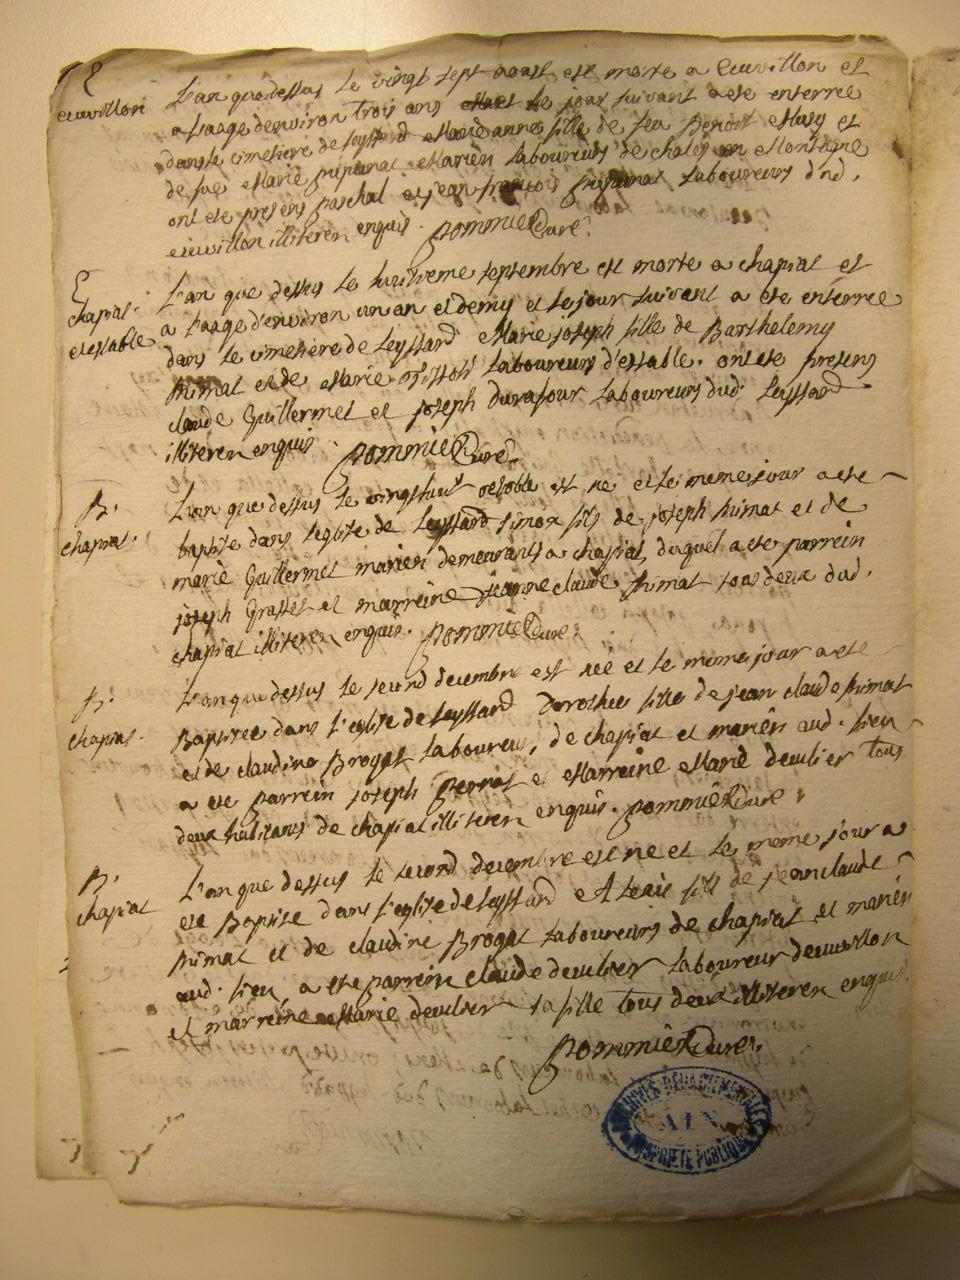 E
cuvillon
L'an que dessus le vingt sept aoust est morte a Cuvillon et
a l'aage d'environ trois ans et le jour suivant a ete enterree
dans le cimetiere de leyssard Marie anne fille de feu Benoit et
de fue Marie mariés laboureurs de en Montagne
ont ete presens paschal et jean francois laboureurs dud.
cuvillon illiteren enquis. pommier Curé.
E
chapiat.
et estable
L'an que dessus le huitieme septembre est morte a chapiat et
a l'aage d'environ un an et demy et le jour suivant a ete enterree
dans le cimetiere de leyssard Marie joseph fille de Barthelemy
thimat et de Marie laboureurs d'estable. ont ete presens
claude Guillermet et joseph durafour laboureurs dud. leyssard
illiteren enquis. pommier Curé.
B.
chapiat.
L'an que dessus le vingt huit octobre est né et le meme jour a ete
baptise dans l'eglise de leyssard simon fils de joseph thimat et de
marie Guillermet mariés demeurants a chapiat, duquel a ete parrein
joseph Grasset et marreine jeanne claude thimat tous deux dud.
chapiat illiteren enquis. pommier Curé.
B.
chapiat.
L'an que dessus le second decembre est née et le meme jour a ete
Baptisee dans l'eglise de leyssard Dorothee fille de jean claude thimat
et de claudine Brogat laboureurs, de chapiat et mariés aud. lieu
a ete parrein joseph et Marreine Marie tous
deux habitans de chapiat illiteren enquis. pommier Curé.
B.
chapiat
L'an que dessus le second decembre est né et le meme jour a
ete Baptise dans l'eglise de leyssard fils de jean claude
thimat et de claudine Brogat laboureurs de chapiat et mariés
aud. lieu a ete parrein claude laboureur de cuvillon
et marreine Marie sa fille tous deux illiteren enquis.
pommier Curé.
ARCHIVES DEPARTEMENTALES
AIN
PROPRIETE PUBLIQUE